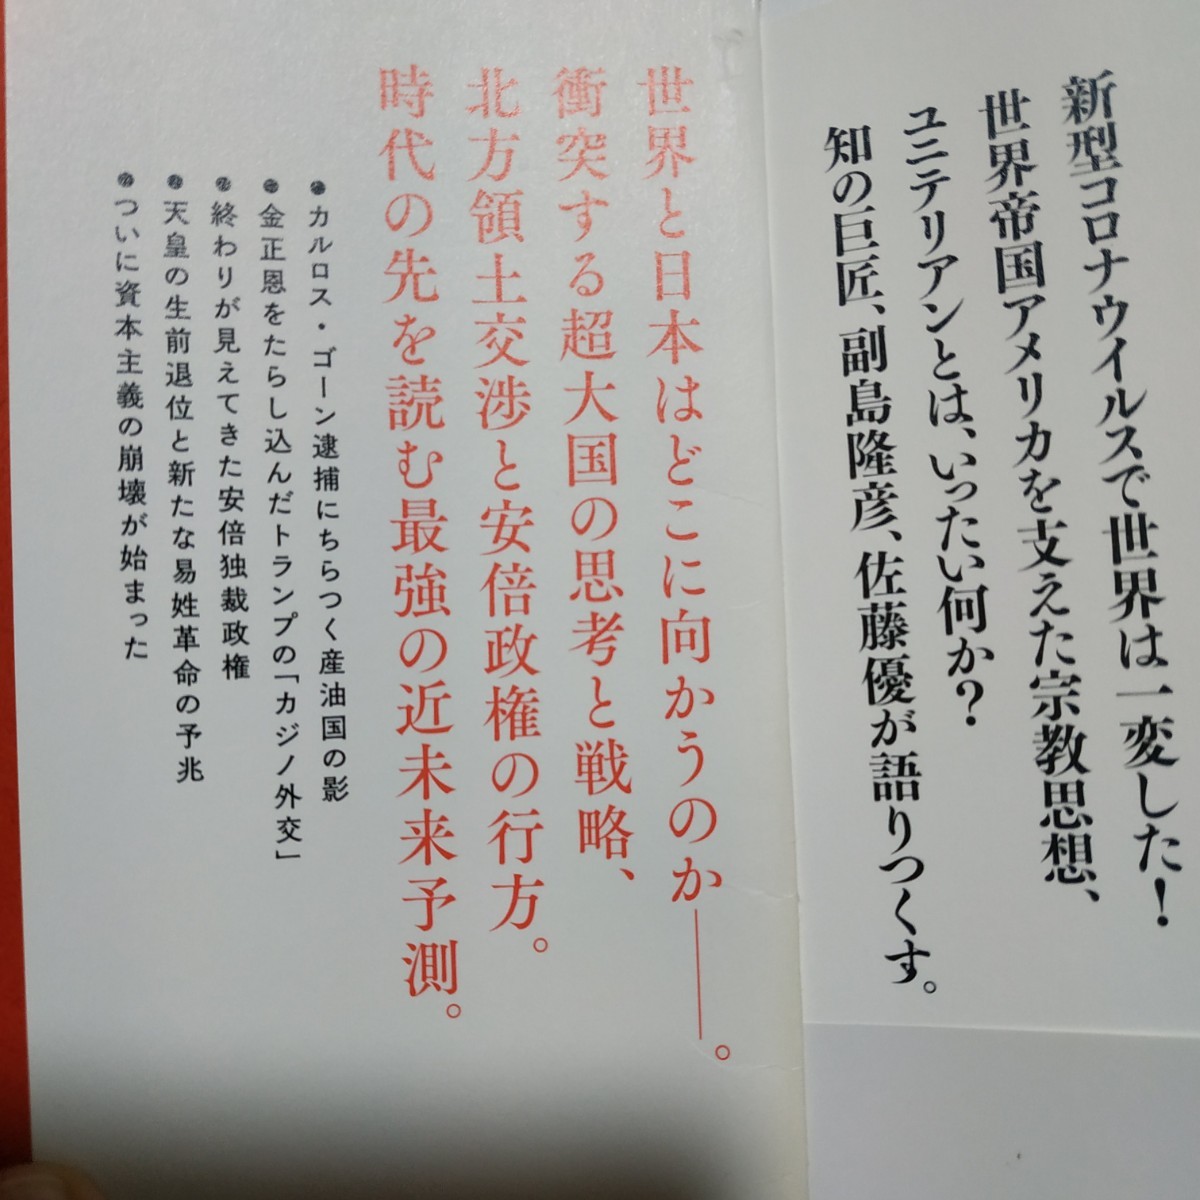 新型コロナウイルスで世界は一変した!
世界帝国アメリカを支えた宗教思想、
ユニテリアンとは、いったい何か?
知の巨匠、副島隆彦、佐藤優が語りつくす。
世界と日本はどこに向かうのか――。
衝突する超大国の思考と戦略、
北方領土交渉と安倍政権の行方。
時代の先を読む最強の近未来予測。
●カルロス・ゴーン逮捕にちらつく産油国の影
●金正恩をたらし込んだトランプの「カジノ外交」
●終わりが見えてきた安倍独裁政権
●天皇の生前退位と新たな易姓革命の予兆
●ついに資本主義の崩壊が始まった